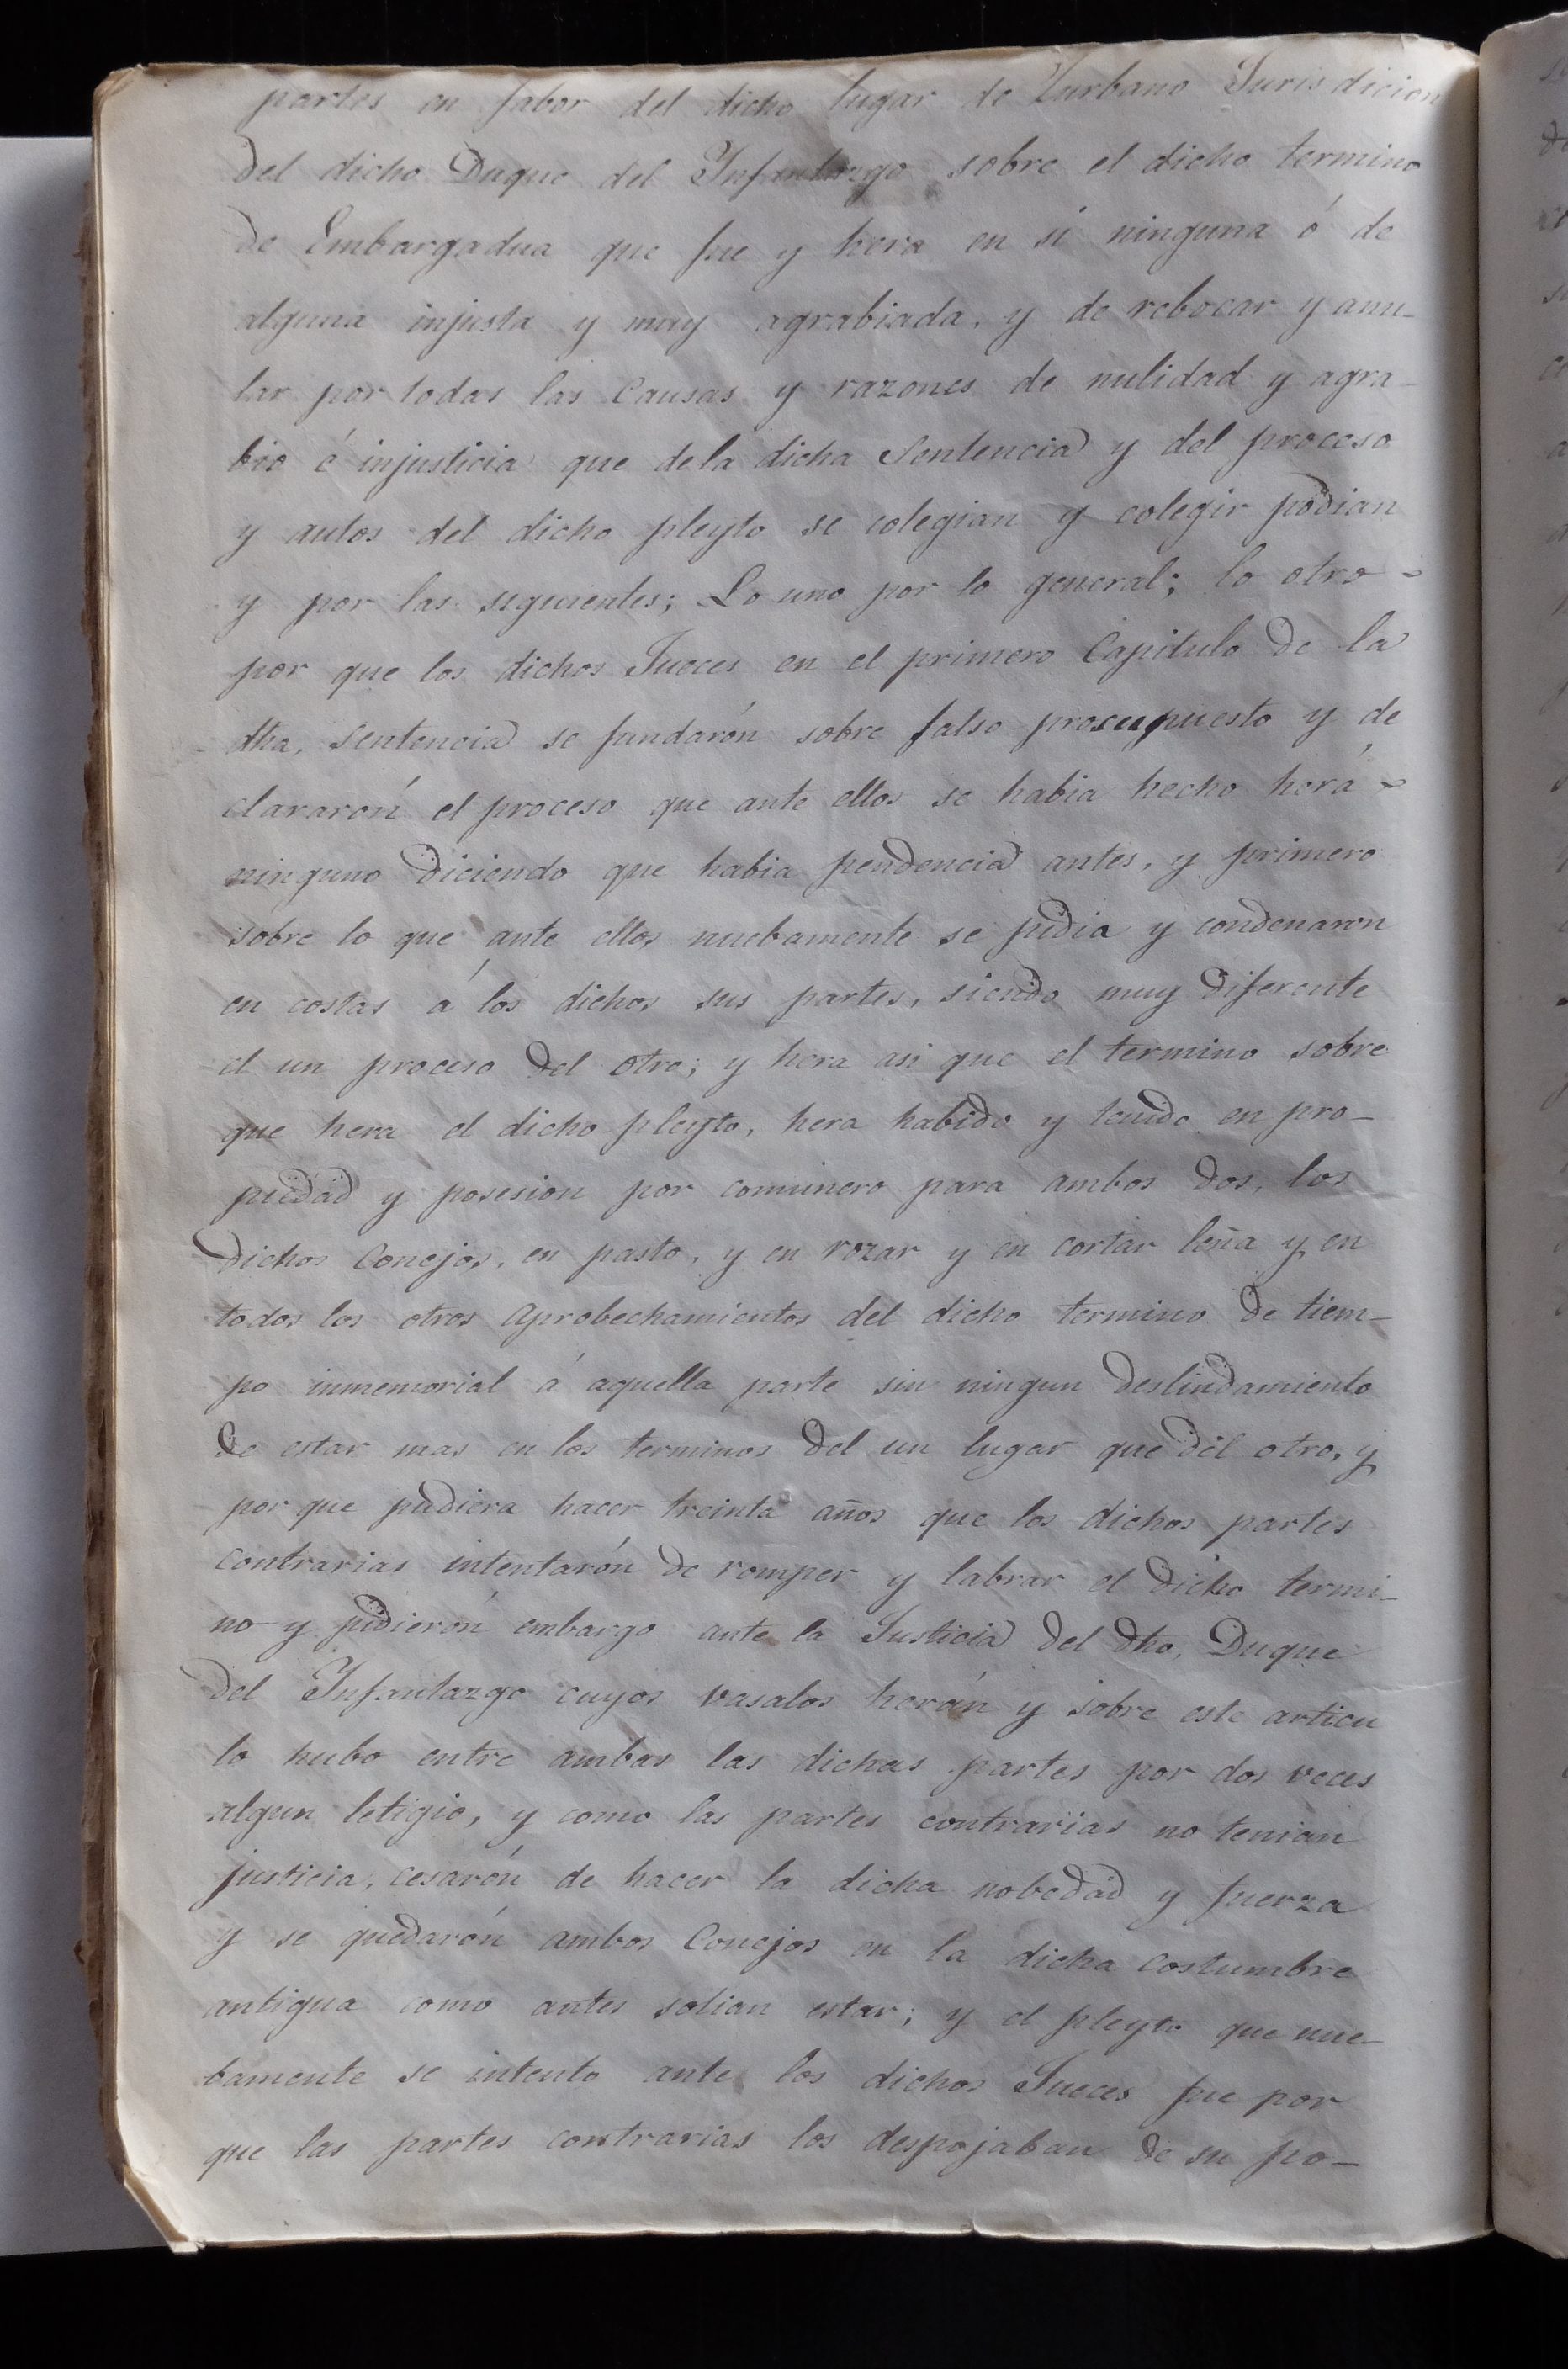 partes en fabor del dicho lugar de Zurbano Jurisdicion
del dicho Duque del Infantazgo sobre el dicho termino
de Embargadua que fue y hera en si ninguna ó de
alguna injusta y muy agrabiada, y de rebocar y anu-
lar por todas las Causas y razones de nulidad y agra-
bio é injusticia que de la dicha Sentencia y del proceso
y autos del dicho pleyto se colegian y colegir podian
y por las siguientes; Lo uno por lo general; lo otro -
por que los dichos Jueces en el primero Capitulo de la
dha, sentencia se fundarón sobre falso presupuesto y de
clararon el proceso que ante ellos se habia hecho herá -
ninguno diciendo que habia pendencia antes, y primero
sobre lo que ante ellos nuebamente se pidia y condenaron
en costas á los dichos sus partes, siendo muy diferente
el un proceso del otro; y hera asi que el termino sobre
que hera el dicho pleyto, hera habido y tenido en pro-
piedad y posesion por comunero para ambos dos, los
dichos Concejos, en pasto, y en rozar y en cortar leña y en
todos los otros aprobechamientos del dicho termino de tiem-
po inmemorial á aquella parte sin ningun deslindamiento
de estar mas en los terminos del un lugar que del otro, y
por que pudiera hacer treinta años que los dichos partes
contrarias intentarón de romper y labrar el dicho termi-
no y pidierón embargo ante la Justicia del dho, Duque
del Infantazgo cuyos vasalos herán y sobre este articu
lo hubo entre ambas las dichas partes por dos veces
algun letigio, y como las partes contrarias no tenian
justicia, cesarón de hacer la dicha nobedad y fuerza
y se quedarón ambos Concejos en la dicha costumbre
antigua como antes solian estar; y el pleyto que nue-
bamente se intento ante los dichos Jueces fue por
que las partes contrarias los despojaban de su po-